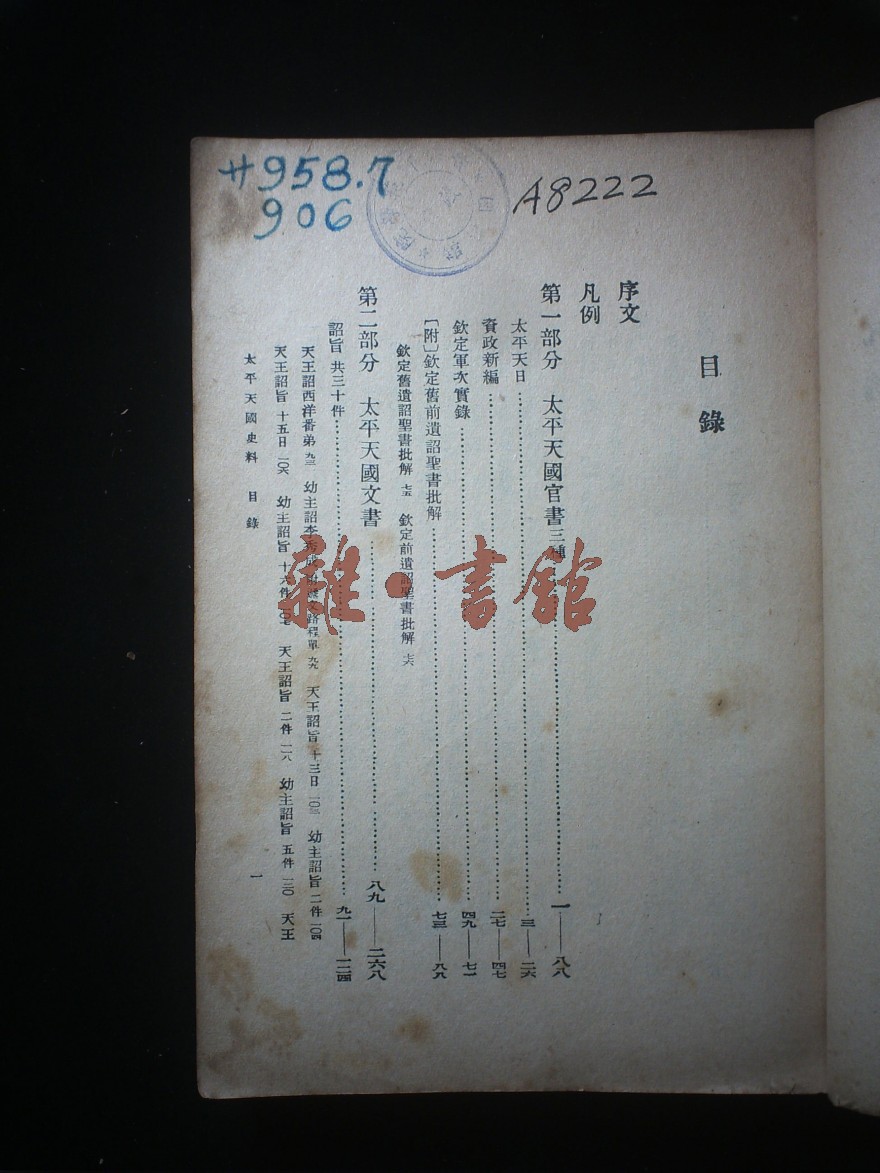 廿958.7
906
A8222
目錄
序文
凡例
第一部分 太平天國官書三種 一——八八
太平天日 三——二六
資政新編 二七——四七
欽定軍次實錄 四九——七一
〔附〕欽定舊前遺詔聖書批解 七三——八八
欽定舊遺詔聖書批解 七五 欽定前遺詔聖書批解 七六
第二部分 太平天國文書 八九——二六八
詔旨 共三十件 九一——一二四
天王詔西洋番弟 九三 幼主詔李秀成附 路程單 九九 天王詔旨 十三日 一〇三 幼主詔旨 二件 一〇四
天王詔旨 十五日 一〇六 幼主詔旨 十六件 一〇七 天王詔旨 二件 一一八 幼主詔旨 五件 一二〇 天王
太平天國史料 目錄
一
雜·書館